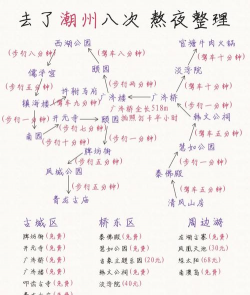 去了潮州八次 熬夜整理
(步行八分钟)
西湖公园
(驾车八分钟)
官塘牛肉火锅
儒学宫
颐园
(驾车十分钟)
淡浮院
(步行五分钟)
许驸马府
(步行四分钟)
(驾车十分钟)
镇海楼
驾车九分钟
广济楼
广济桥
韩文公祠
(步行一分钟)
开元寺
颐园
广济桥全长518m
拍照打卡半小时
(驾车五分钟)
甬园
(步行七分钟)
慧如公园
(步行十分钟)
牌坊街
(驾车一分钟)
(步行五分钟)
泰佛殿
凤城公园
(驾车五分钟)
(步行五分钟)
青龙古庙
清风山房
古城区
桥东区
周边游
牌坊街(免费)
泰佛殿(免费)
龙湖古寨(免费)
开元寺(免费)
慧如公园(免费)
凤凰天池(30元)
广济桥(免费)
(20元)
绿太阳(68元)
广济楼(免费)
韩文公祠(免费)
南澳岛(免费)
甲第古巷(免费)
淡浮院(40元)